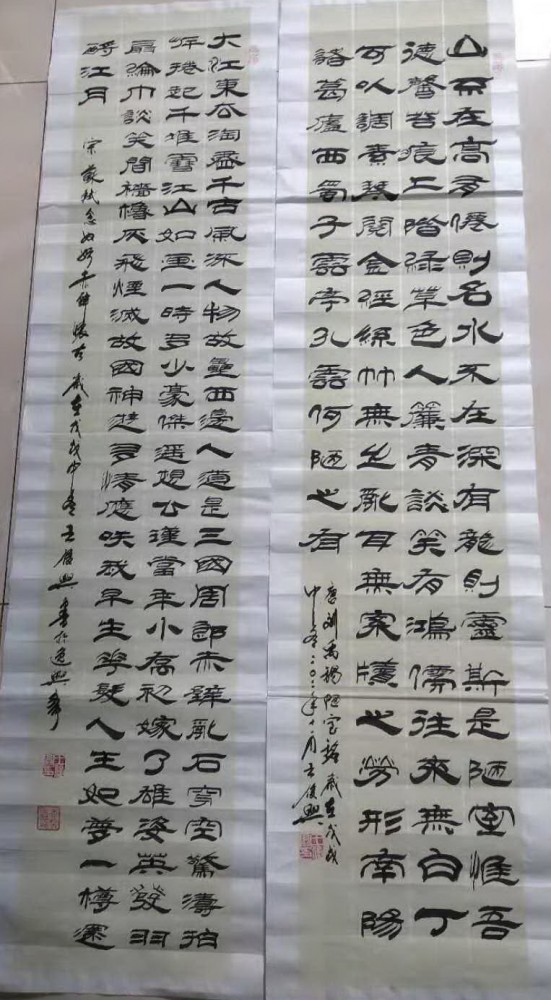 山不在高有僊則名水不在深有龍則靈斯是陋室惟吾
德馨苔痕上階綠草色入簾青談笑有鴻儒往來無白丁
可以調素琴閱金經絲竹無之亂耳無案牘之勞形南陽
諸葛廬西蜀子雲亭孔雲何陋之有
唐劉禹錫陋室銘 歲在戊戌
中冬二〇一八年十二月王俊興
大江東去淘盡千古風流人物故壘西邊人道是三國周郎赤壁亂石穿空驚濤拍
岸捲起千堆雪江山如畫一時多少豪傑遥想公瑾當年小喬初嫁了雄姿英發羽
扇綸巾談笑間檣櫓灰飛煙滅故國神遊多情應咲我早生華髮人生如夢一樽還
酹江月
宋蘇軾念奴嬌赤壁懷古 歲在戊戌中冬王俊興書於